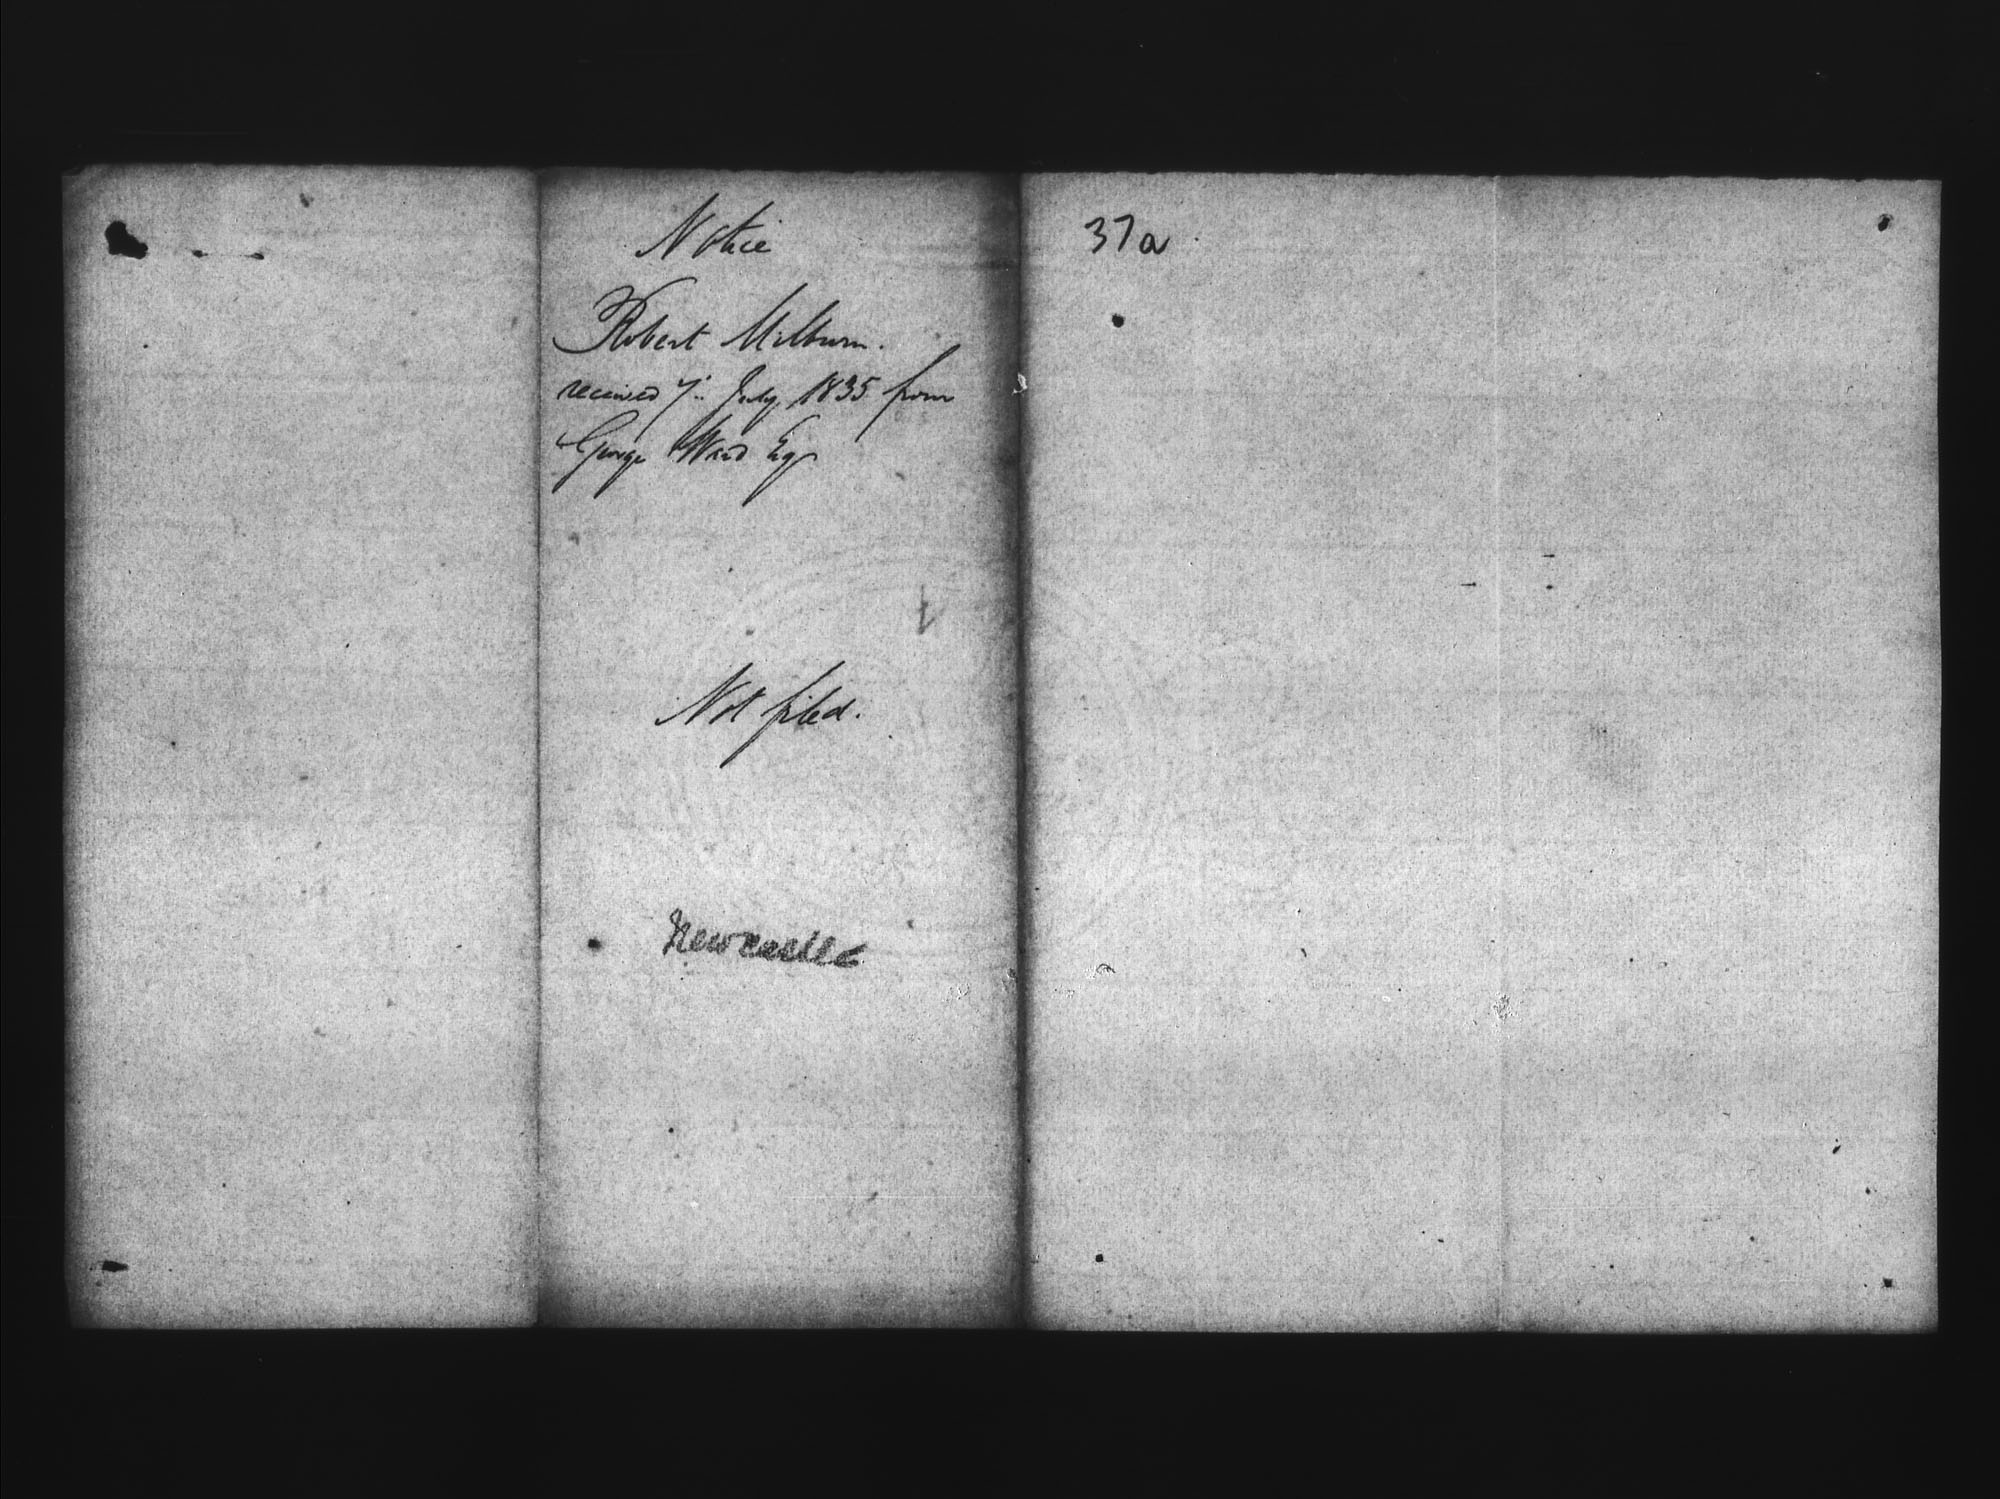 Notice
Robert Milburn.
received 7th July 1835 from
George Ward Esqr
Not filed.
Newcastle
37a